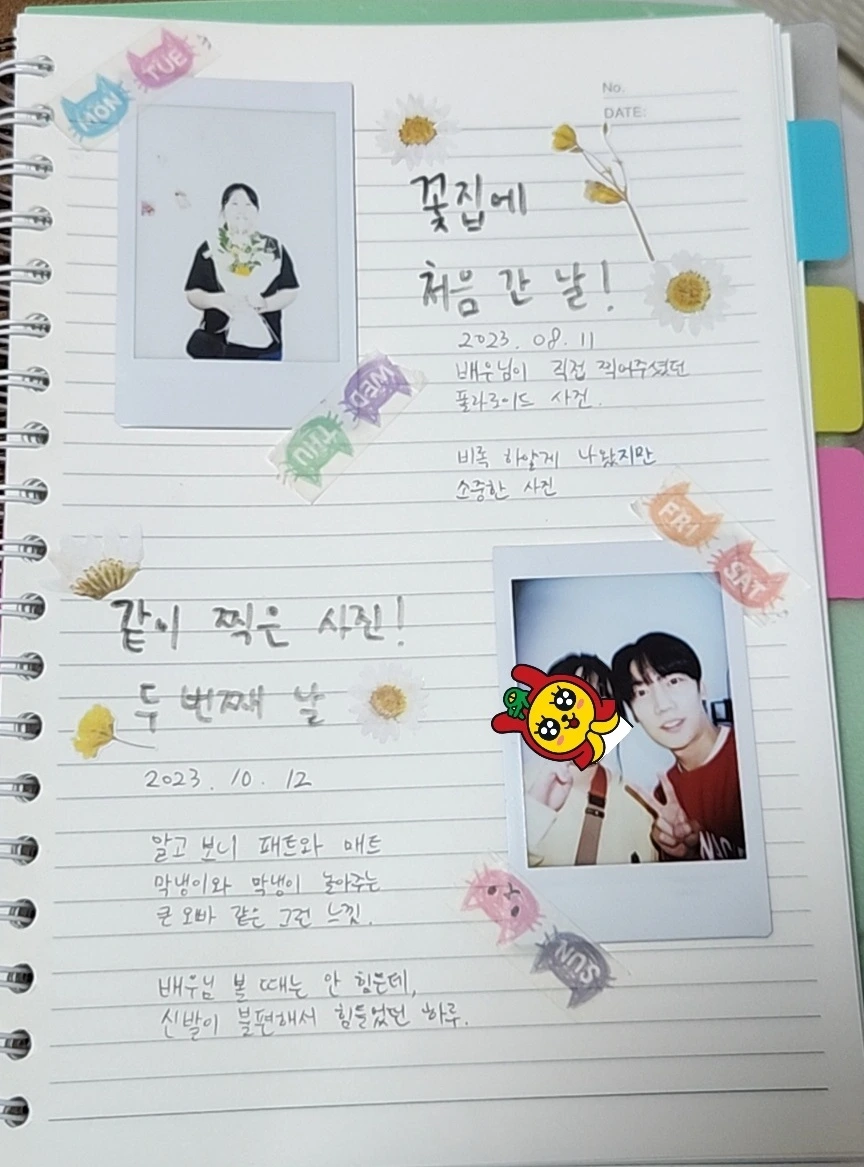 MON
TUE
No.
DATE:
꽃집에
처음 간 날!
2023. 08. 11
배우님이 직접 찍어주셨던
폴라로이드 사진.
비록 하얗게 나왔지만
소중한 사진
WED
THU
FRI
SAT
같이 찍은 사진!
두 번째 날
2023. 10. 12
알고 보니 패트와 매트
막냉이와 막냉이 놀아주는
큰 오빠 같은 그런 느낌.
배우님 볼 때는 안 힘든데,
신발이 불편해서 힘들었던 하루.
SUN